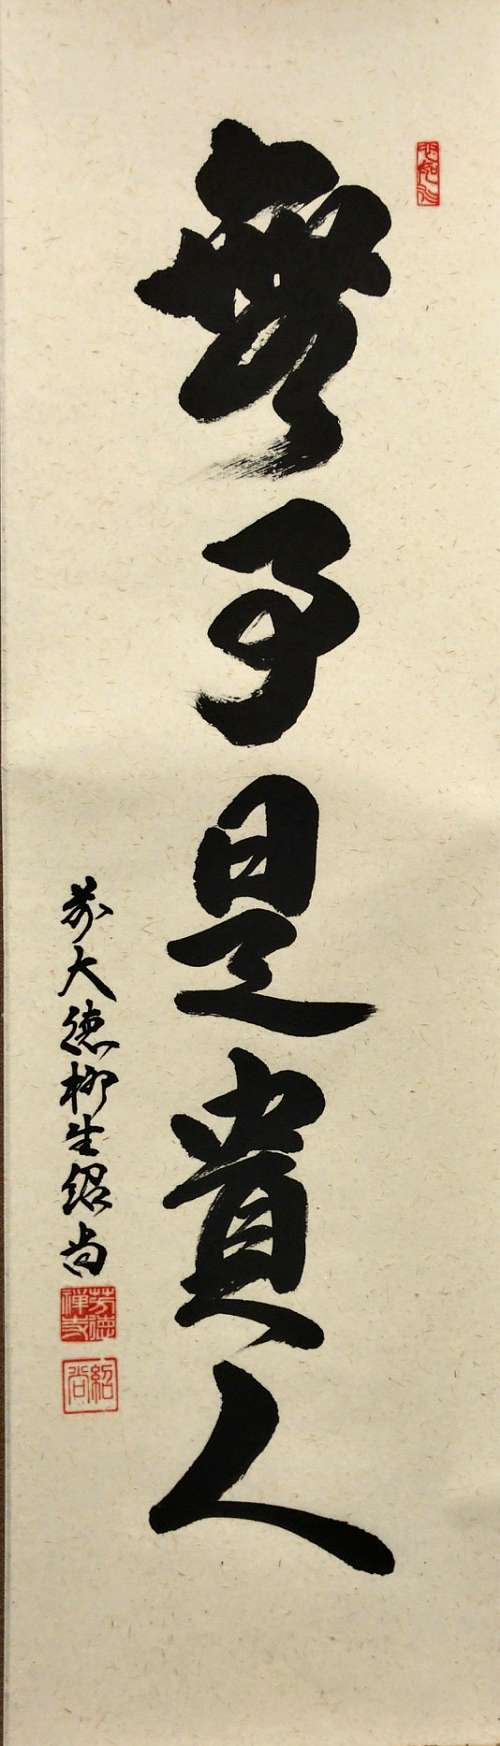 無事是貴人
前大徳柳生紹尚
芳徳禅寺
紹尚